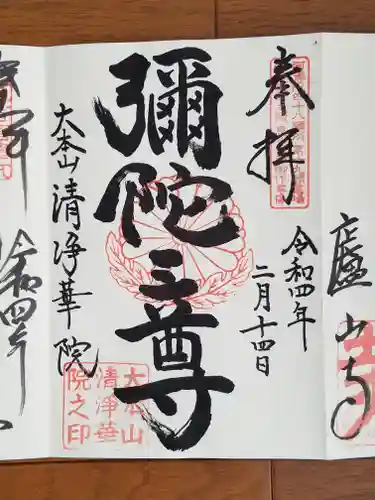 廬山寺
奉拝
令和四年
二月十四日
彌陀三尊
大本山清浄華院
大本山
清浄華
院之印
令和四年